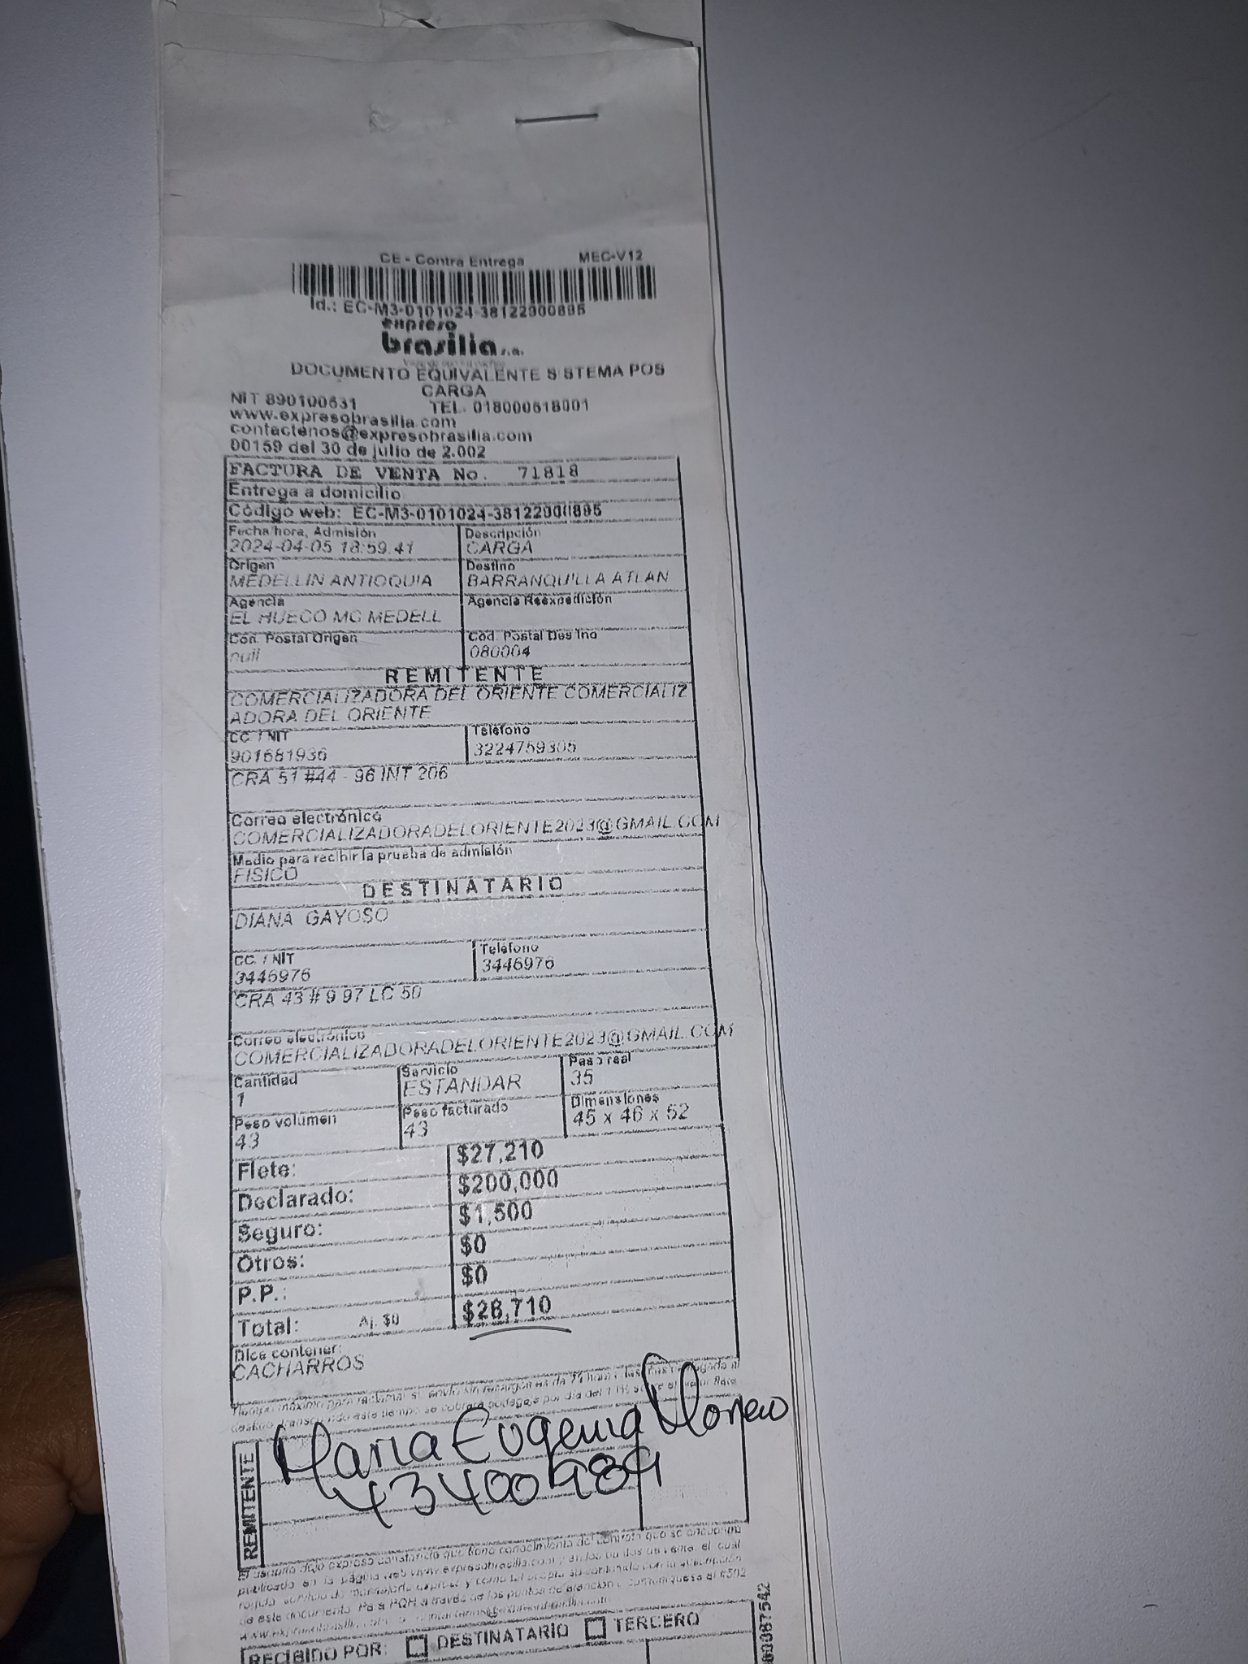 CE - Contra Entrega MEC-V12
Id.: EC-M3-0101024-38122900895
expreso
brasilia s.a.
DOCUMENTO EQUIVALENTE SISTEMA POS
CARGA
NIT 890100531 TEL. 018000518001
www.expresobrasilia.com
contactenos@expresobrasilia.com
00159 del 30 de julio de 2.002
FACTURA DE VENTA No. 71818
Entrega a domicilio
Código web: EC-M3-0101024-38122900895
Fecha/hora, Admisión Descripción
2024-04-05 18:59:41 CARGA
Origen Destino
MEDELLIN ANTIOQUIA BARRANQUILLA ATLAN
Agencia Agencia Reexpedición
EL HUECO MC MEDELL
Cod. Postal Origen Cod. Postal Destino
null 080004
REMITENTE
COMERCIALIZADORA DEL ORIENTE COMERCIALIZ
ADORA DEL ORIENTE
CC / NIT Teléfono
901681936 3224759305
CRA 51 #44 - 96 INT 206
Correo electrónico
COMERCIALIZADORADELORIENTE2023@GMAIL.COM
Medio para recibir la prueba de admisión
FISICO
DESTINATARIO
DIANA GAYOSO
CC / NIT Teléfono
3446976 3446976
CRA 43 # 9 97 LC 50
Correo electrónico
COMERCIALIZADORADELORIENTE2023@GMAIL.COM
Cantidad Servicio Peso real
1 ESTANDAR 35
Peso volumen Peso facturado Dimensiones
43 43 45 x 46 x 52
Flete: $27,210
Declarado: $200,000
Seguro: $1,500
Otros: $0
P.P.: $0
Total: Aj. $0 $28,710
Dice contener:
CACHARROS
REMITENTE
Maria Eugenia Moreno
43400989
RECIBIDO POR: DESTINATARIO TERCERO
00087542